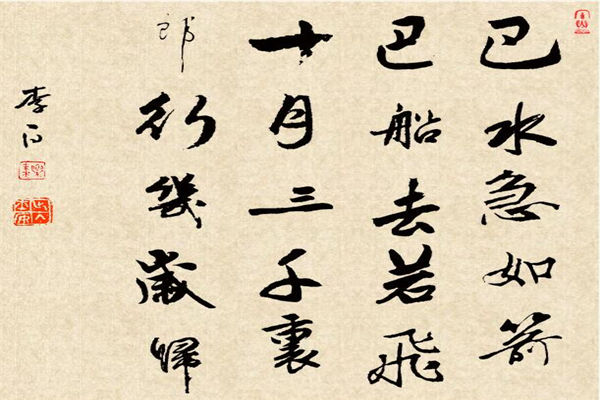 巴水急如箭
巴船去若飛
十月三千裏
郎行幾歲歸
李